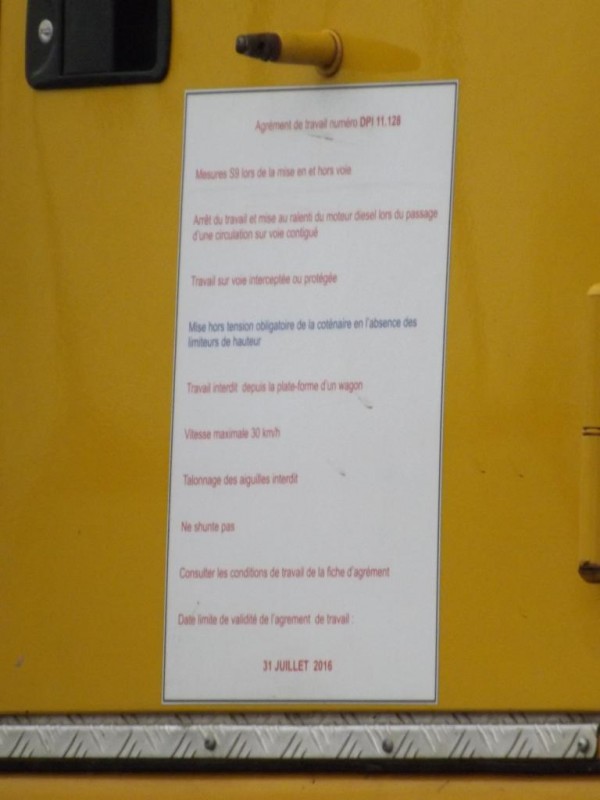 Agrément de travail numéro DPI 11.128
Mesures S9 lors de la mise en et hors voie
Arrêt du travail et mise au ralenti du moteur diesel lors du passage
d'une circulation sur voie contiguë
Travail sur voie interceptée ou protégée
Mise hors tension obligatoire de la coténaire en l'absence des
limiteurs de hauteur
Travail interdit depuis la plate-forme d'un wagon
Vitesse maximale 30 km/h
Talonnage des aiguilles interdit
Ne shunte pas
Consulter les conditions de travail de la fiche d'agrément
Date limite de validité de l'agrement de travail :
31 JUILLET 2016